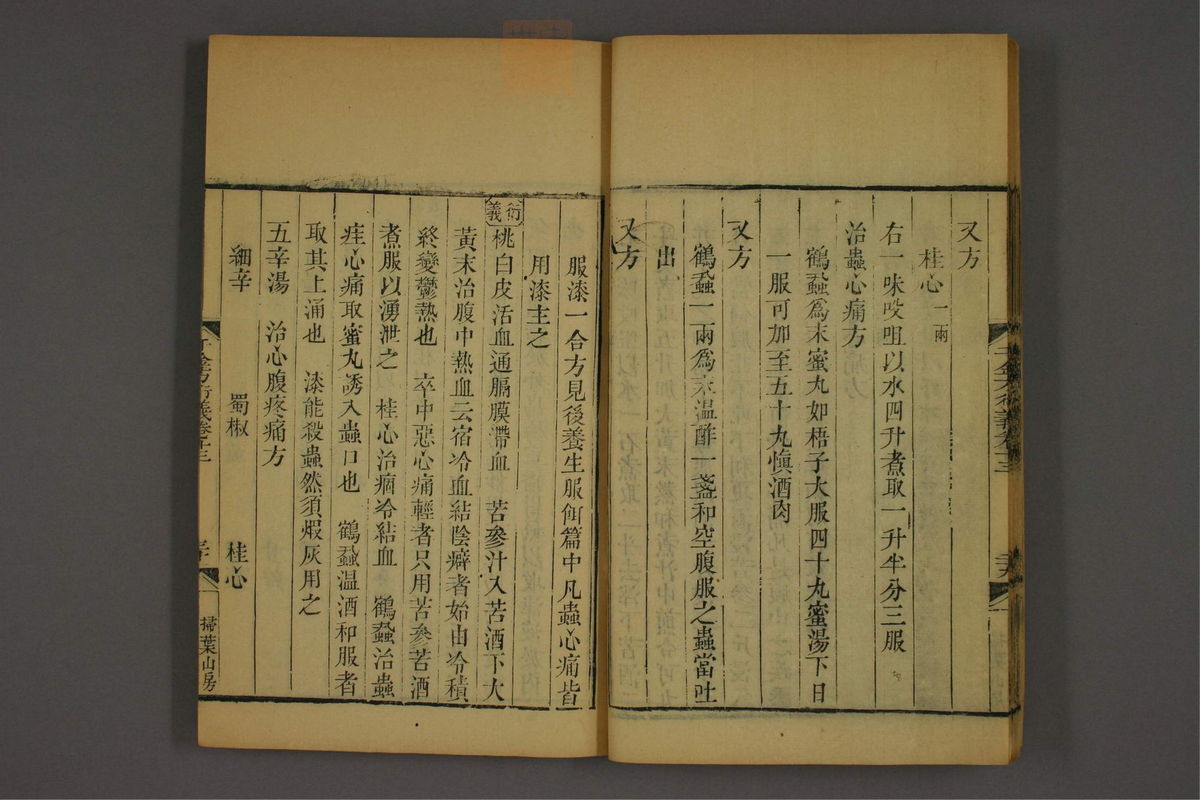 又方
桂心一兩
右一味㕮咀以水四升煮取一升半分三服
治蟲心痛方
鶴蝨爲末蜜丸如梧子大服四十丸蜜湯下日
一服可加至五十丸慎酒肉
又方
鶴蝨一兩爲末温酢一盞和空腹服之蟲當吐
出
又方
服漆一合方見後養生服餌篇中凡蟲心痛皆
用漆主之
衍義
桃白皮活血通膈膜滯血 苦參汁入苦酒下大
黃末治腹中熱血云宿冷血結陰癖者始由冷積
終變鬱熱也 卒中惡心痛輕者只用苦參苦酒
煮服以湧泄之 桂心治痼冷結血 鶴蝨治蟲
疰心痛取蜜丸誘入蟲口也 鶴蝨温酒和服者
取其上涌也 漆能殺蟲然須煅灰用之
五辛湯 治心腹疼痛方
細辛 蜀椒 桂心
千金方衍義卷十三
掃葉山房